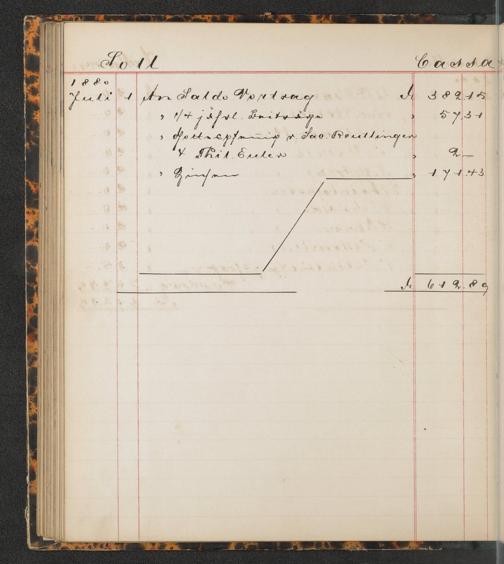 Soll Cassa
1880
Juli 1 An Saldo Vortrag M 382 15
" 1/4 jährl. Beiträge " 57 31
" Gottespfennig v. Sac. Reutlinger
& Phil. Euler " 2 —
" Zinsen " 171 43
M 612 89